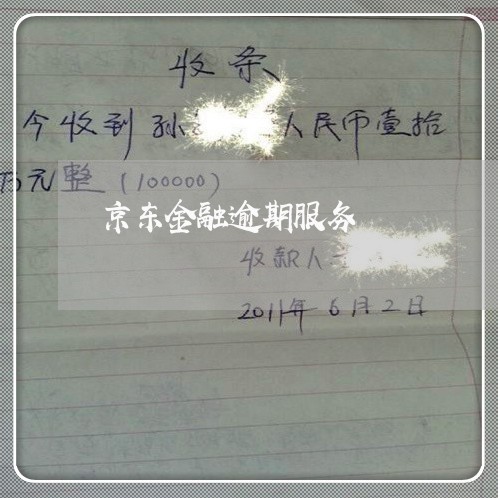 收条
今收到孙 人民币壹拾
万元整(100000)
京东金融逾期服务
收款人
2011年6月2日